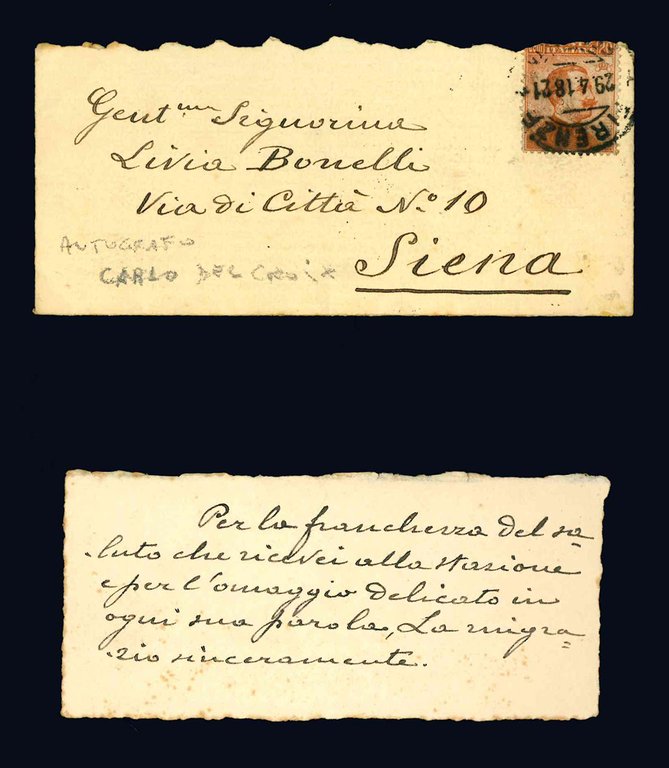 Gent.ma Signorina
Livia Bonelli
Via di Città N.º 10
Siena
AUTOGRAFO
CARLO DEL CROIX
ITALIANE
FIRENZE
29.4.18.21
Per la franchezza del sa-
luto che ricevei alla stazione
e per l'omaggio delicato in
ogni sua parola, La ringra-
zio sinceramente.